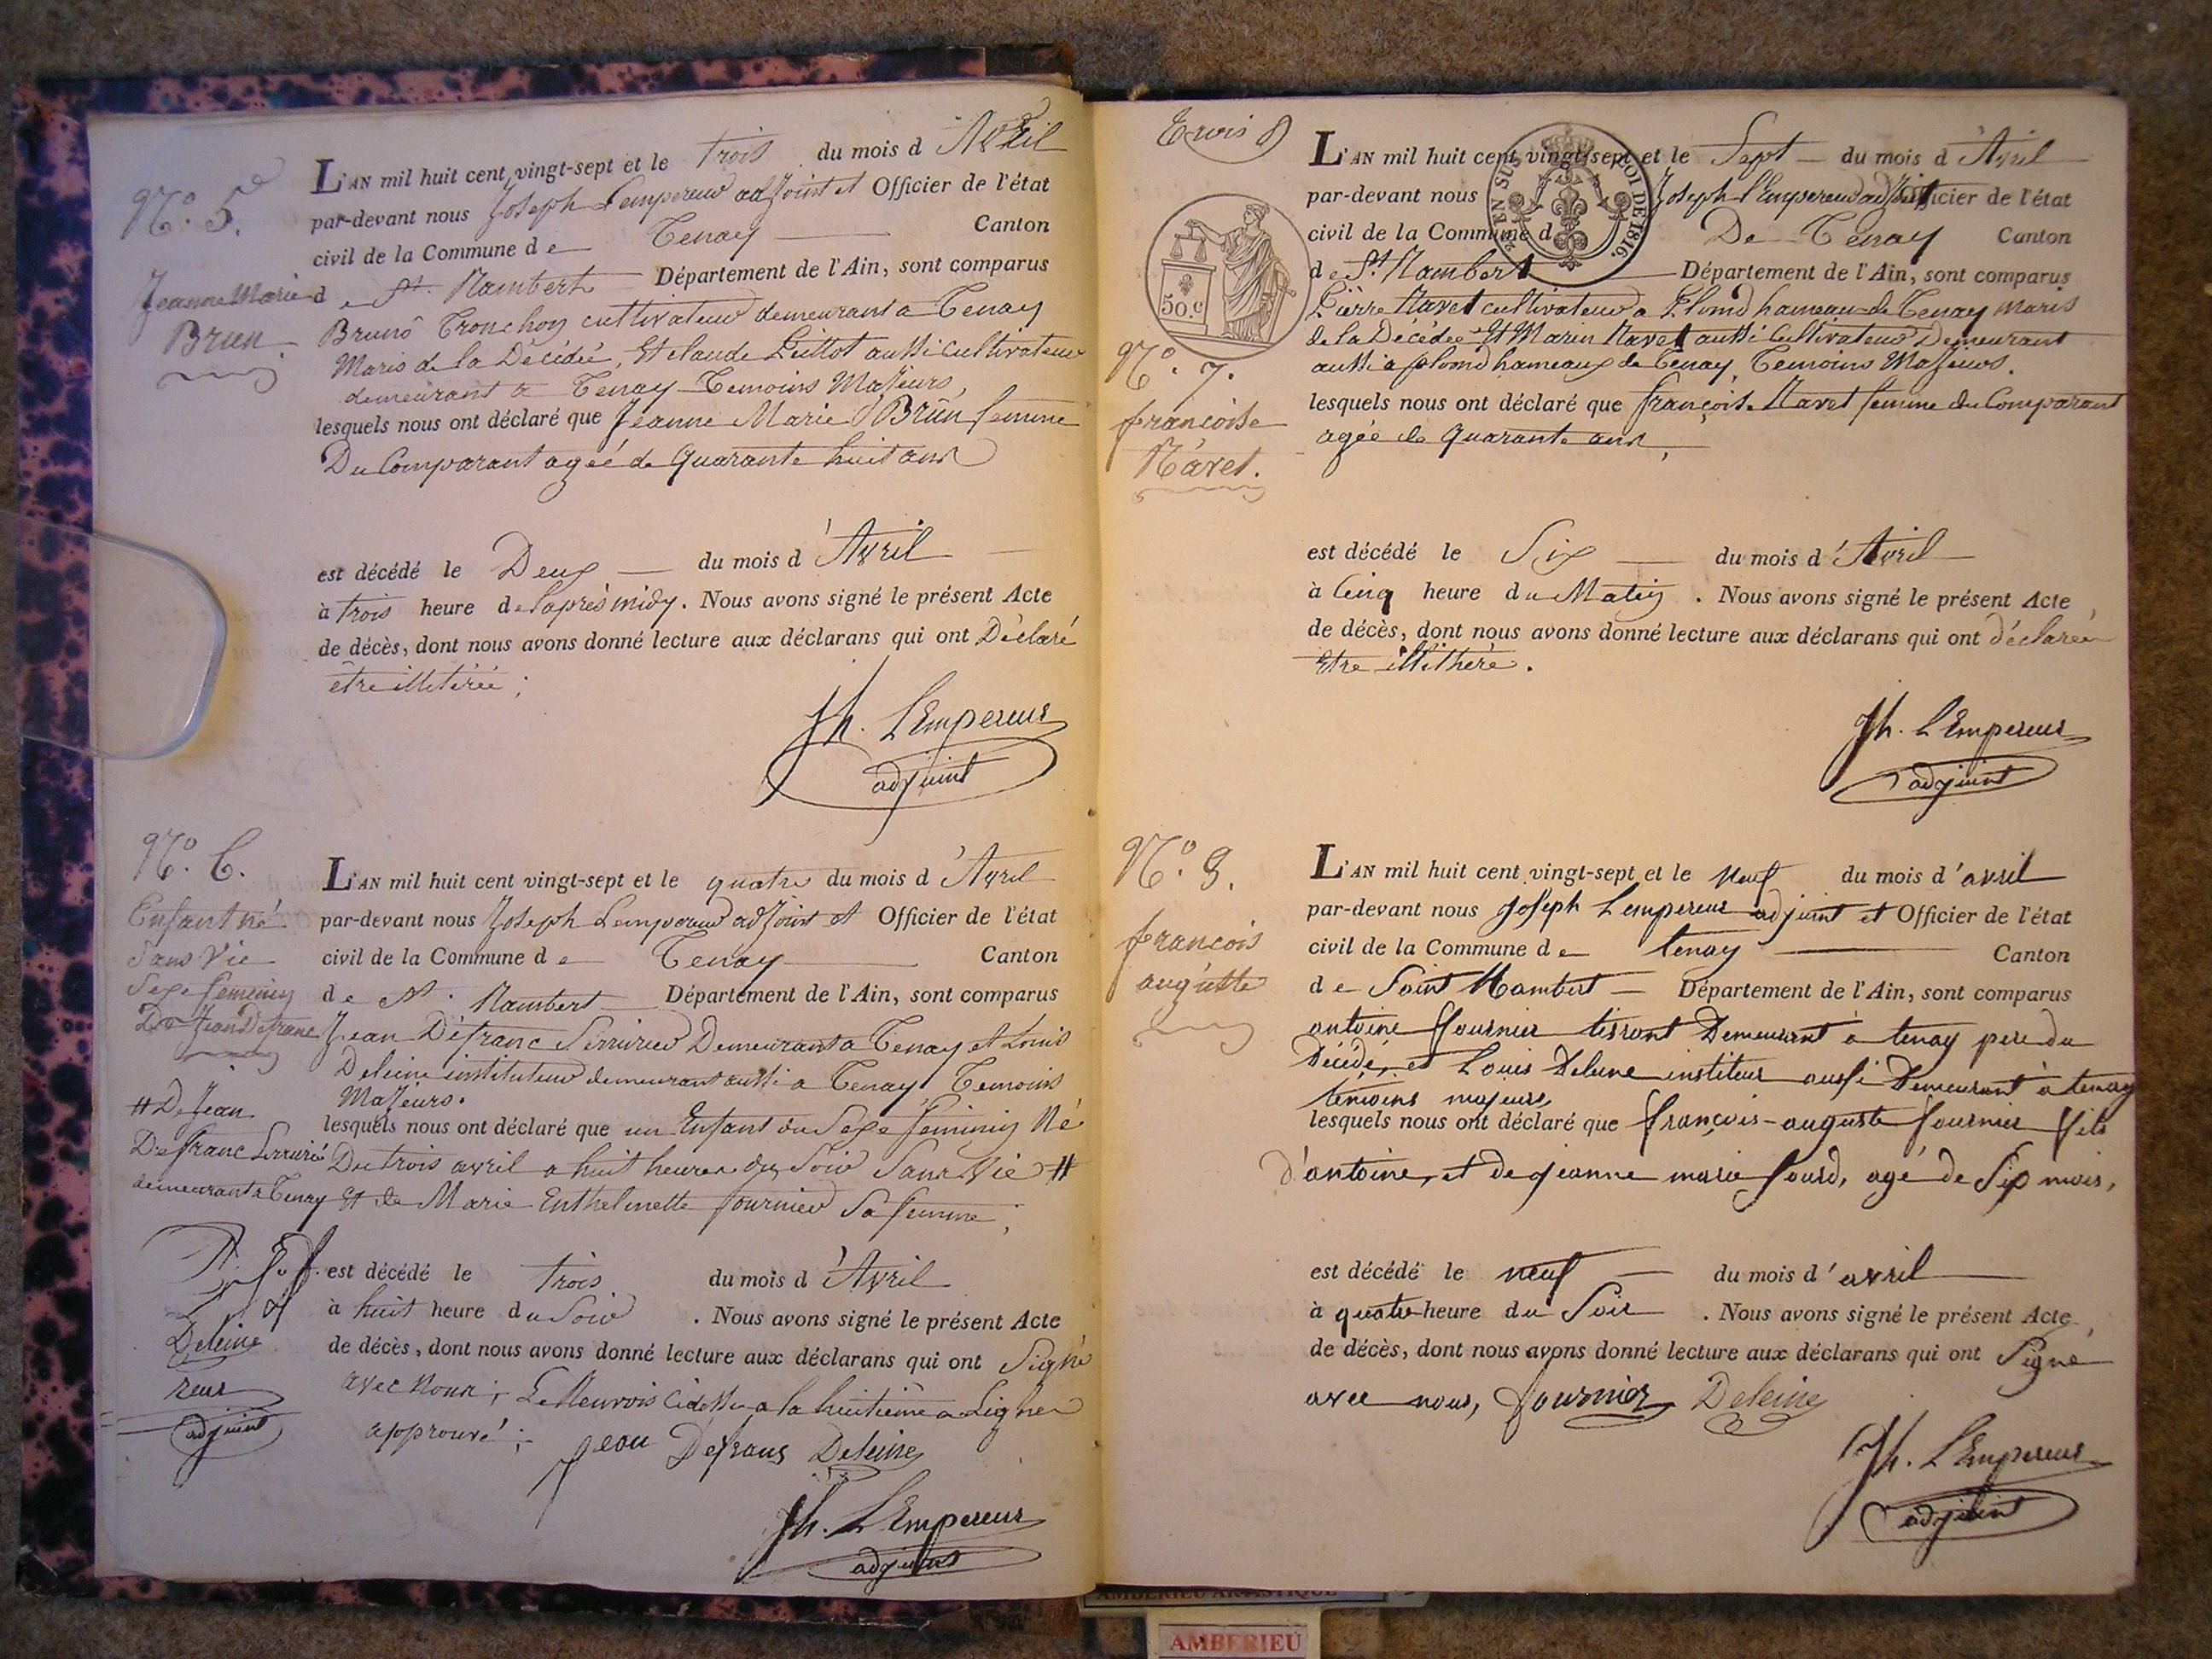 N.º 5.
Jeanne Marie
Brun
L'AN mil huit cent vingt-sept et le trois du mois d'Avril
par-devant nous Joseph Lempereur adjoint et Officier de l'état
civil de la Commune de Tenay Canton
de St. Rambert Département de l'Ain, sont comparus
Bruno Tronchon cultivateur demeurant a Tenay
Maris de la Décédée, Et claude Guittot aussi cultivateur
demeurant a Tenay Temoins Majeurs,
lesquels nous ont déclaré que Jeanne Marie Brun femme
Du Comparant ageé de Quarante huit ans
est décédé le Deux du mois d'Avril
à trois heure de l'après midy. Nous avons signé le présent Acte
de décès, dont nous avons donné lecture aux déclarans qui ont Déclaré
être illitérée;
Jh. LEmpereur
adjoint
N.º 6.
Enfant né
Sans Vie
Sexe feminin
De Jean Defranc
L'AN mil huit cent vingt-sept et le quatre du mois d'Avril
par-devant nous Joseph Lempereur adjoint et Officier de l'état
civil de la Commune de Tenay Canton
de St. Rambert Département de l'Ain, sont comparus
Jean Défranc Serrurier Demeurant a Tenay et Louis
Deleine instituteur demeurant aussi a Tenay Temoins
Majeurs.
lesquels nous ont déclaré que un Enfant du Sexe feminin Né
Du trois avril a huit heures du Soir Sans Vie #
Et de Marie Enthelmette fournier Sa femme,
# De Jean
Defranc Serrurié
demeurant a Tenay
Deleine
reur
adjoint
est décédé le trois du mois d'Avril
à huit heure du Soir. Nous avons signé le présent Acte
de décès, dont nous avons donné lecture aux déclarans qui ont Signé
avec nous; Le Renvois cidessu a la huitième Ligne
approuvé; Jean Defranc Deleine
Jh. LEmpereur
adjoint
Trois
50.c
EN SUS LOI DE 1816.
N.º 7.
francoise
Navet.
L'AN mil huit cent vingt-sept et le Sept du mois d'Avril
par-devant nous Joseph l'Empereur adjoint Officier de l'état
civil de la Commune d De Tenay Canton
de St. Rambert Département de l'Ain, sont comparus
Pierre Navet cultivateur a Plomd hameau de Tenay Maris
de la Décédée Et Marin Navet aussi Cultivateur Demeurant
aussi a plomd hameaux de Tenay, Temoins Majeurs.
lesquels nous ont déclaré que françoise Navet femme du Comparant
agée de Quarante ans,
est décédé le Six du mois d'Avril
à Cinq heure du Matin. Nous avons signé le présent Acte
de décès, dont nous avons donné lecture aux déclarans qui ont déclarée
Etre illithéré.
Jh. LEmpereur
adjoint
francois
auguste
L'AN mil huit cent vingt-sept et le Neuf du mois d'avril
par-devant nous joseph Lempereur adjoint et Officier de l'état
civil de la Commune de tenay Canton
de Saint Rambert Département de l'Ain, sont comparus
antoine fournier tisront Demeurant à tenay pere du
Décédé, et Louis Deleine institeur aussi Demeurant à tenay
témoins majeurs
lesquels nous ont déclaré que françois-auguste fournier fils
d'antoine, et de jeanne marie fourd, agé de Six mois,
est décédé le neuf du mois d'avril
à quatre heure du Soir. Nous avons signé le présent Acte
de décès, dont nous avons donné lecture aux déclarans qui ont Signé
avec nous, fournier Deleine
Jh. LEmpereur
adjoint
AMBERIEU ARTISTIQUE
AMBERIEU